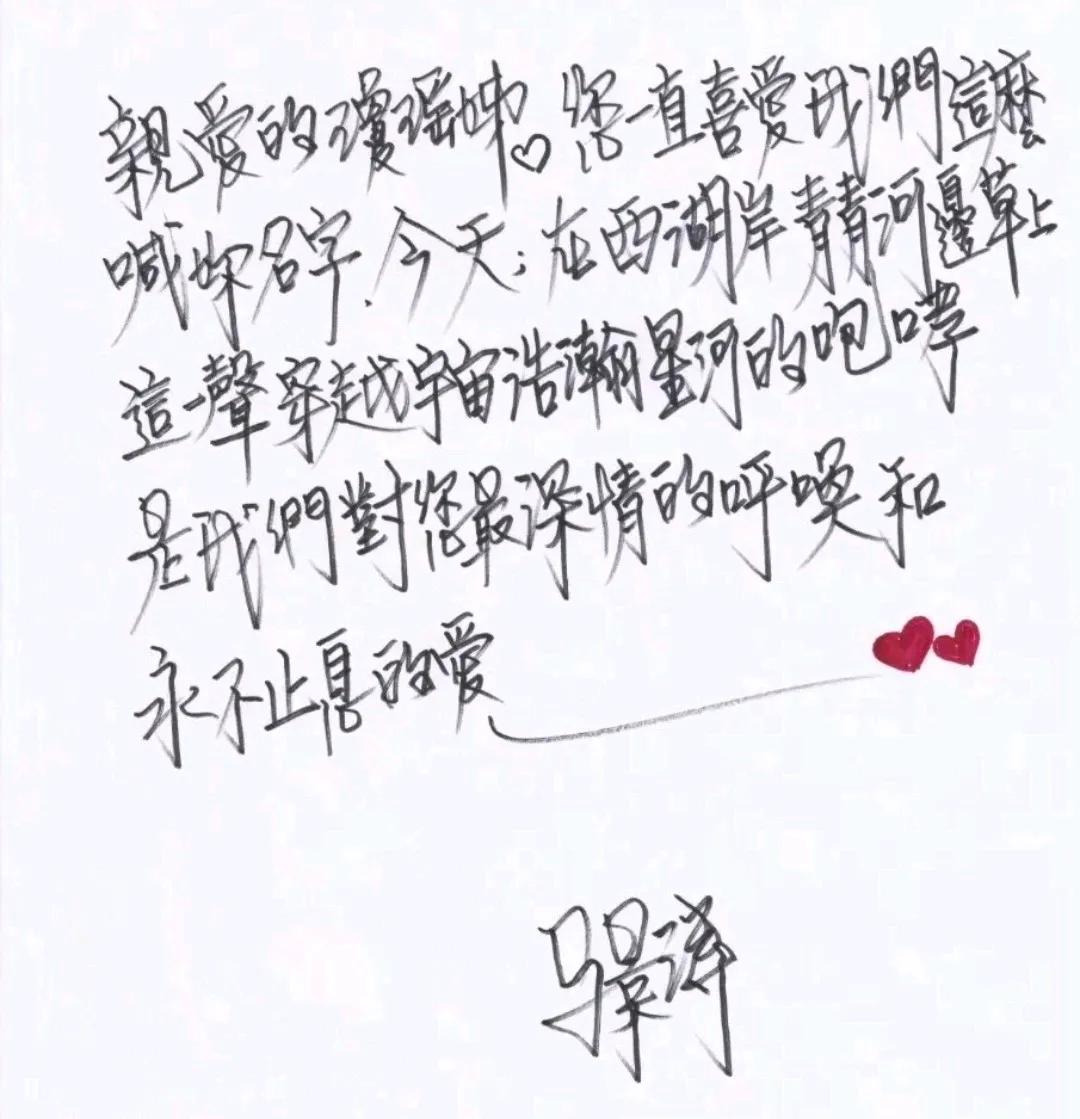 親愛的瓊瑤姊♡您一直喜愛我們這麼
喊妳名字.今天;在西湖岸青青河邊草上
這一聲穿越宇宙浩瀚星河的咆哮
是我們對您最深情的呼喚和
永不止息的愛
景濤